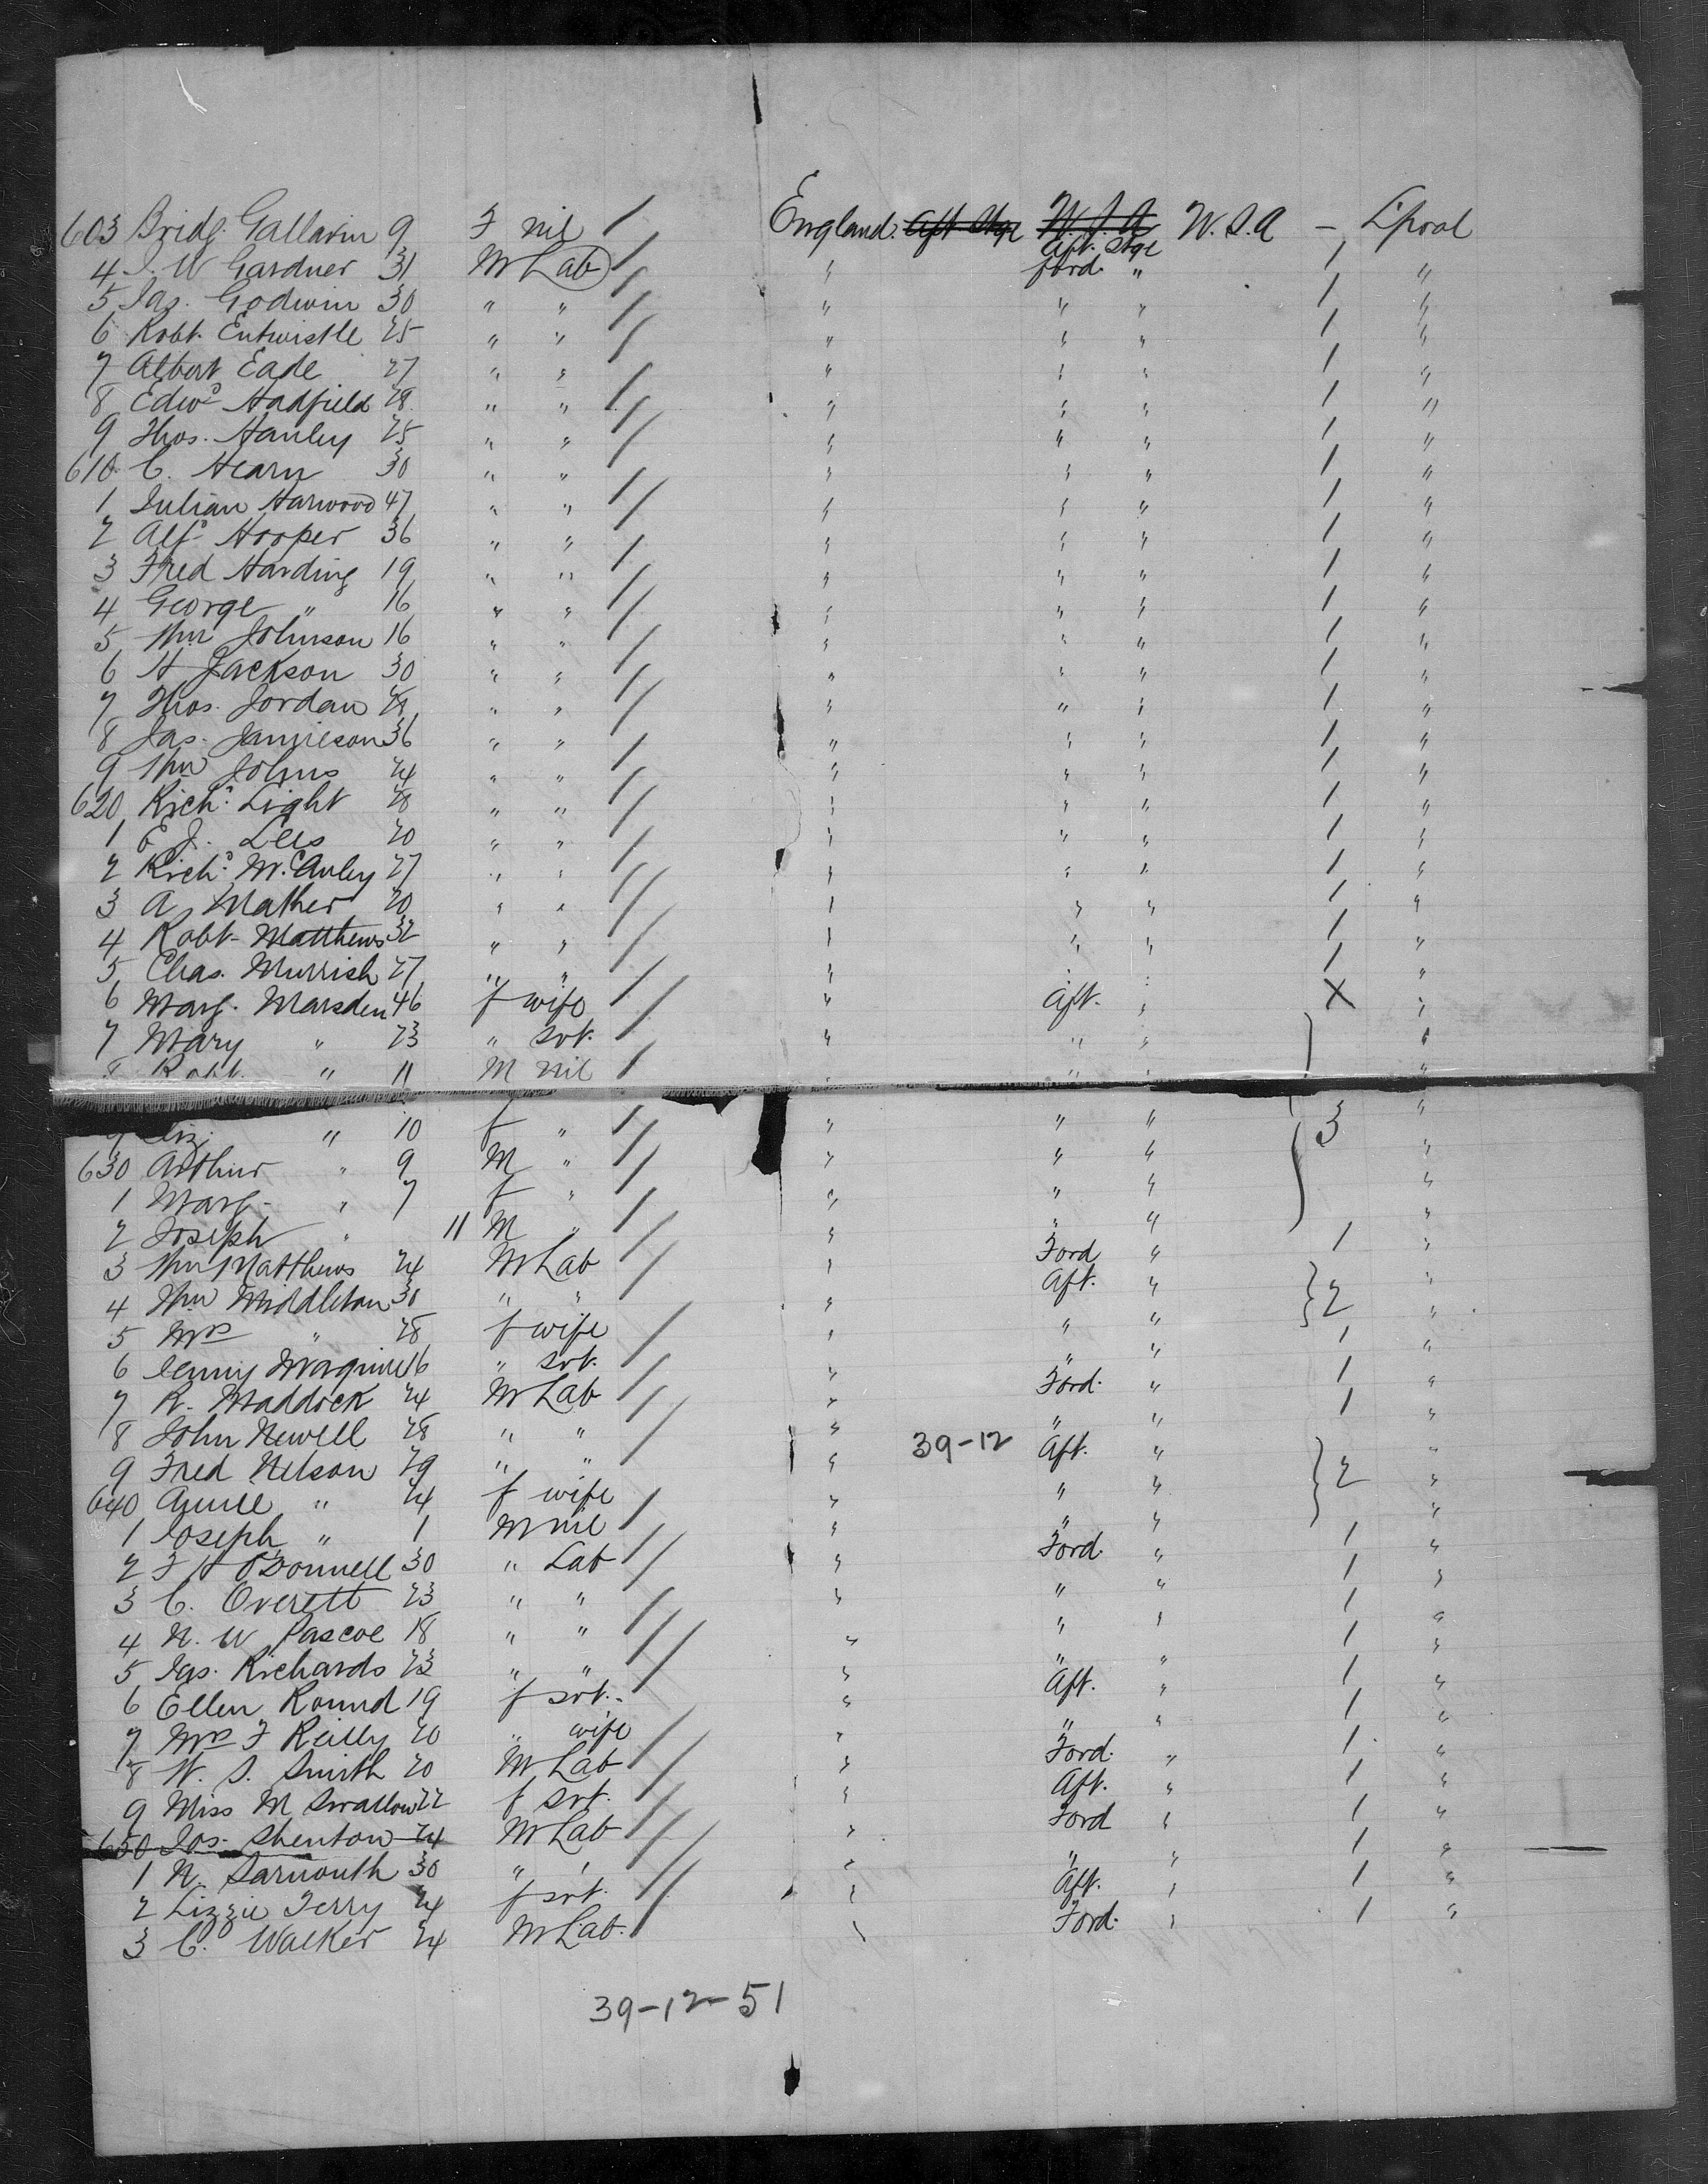 603 Bridg. Gallavin 9 F nil / England. Aft Stge U.S.A U.S.A — L'pool
4 J. W Gardner 31 M Lab / " Aft. Stge Ford. " 1 "
5 Jas. Godwin 30 " " / " " " 1 "
6 Robt. Entwistle 25 " " / " " " 1 "
7 Albert Eade 27 " " / " " " 1 "
8 Edwd Hadfield 28 " " / " " " 1 "
9 Thos. Hanley 25 " " / " " " 1 "
610 C. Hearn 30 " " / " " " 1 "
1 Julian Harwood 47 " " / " " " 1 "
2 Alfd Hooper 36 " " / " " " 1 "
3 Fred Harding 19 " " / " " " 1 "
4 George " 16 " " / " " " 1 "
5 Wm Johnson 16 " " / " " " 1 "
6 H Jackson 30 " " / " " " 1 "
7 Thos. Jordan 28 " " / " " " 1 "
8 Jas. Jamieson 36 " " / " " " 1 "
9 Wm Johns 24 " " / " " " 1 "
620 Richd. Light 28 " " / " " " 1 "
1 E J. Lees 20 " " / " " " 1 "
2 Richd. McAuley 27 " " / " " " 1 "
3 A Mather 20 " " / " " " 1 "
4 Robt. Matthews 32 " " / " " " 1 "
5 Chas. Murrish 27 " " / " " " 1 "
6 Marg. Marsden 46 f wife / " Aft. " X "
7 Mary " 23 " svt. / " " " "
8 Robt. " 11 M nil / " " " "
9 Liz. " 10 f " / " " " 3 "
630 Arthur " 9 M " / " " " "
1 Marg. " 7 f " / " " " "
2 Joseph " 11 M " / " " " "
3 Wm Matthews 24 M Lab / " Ford " 1 "
4 Wm Middleton 30 " " / " Aft. " 2 "
5 Mrs " 28 f wife / " " " "
6 Jenny Maguire 16 " svt. / " " " 1 "
7 R. Maddock 24 M Lab / " Ford. " 1 "
8 John Newell 28 " " / " " " 1 "
9 Fred Nelson 29 " " / " 39-12 Aft. " 2 "
640 Annie " 24 f wife " " " "
1 Joseph " 1 M nil / " " " "
2 F H O'Donnell 30 " Lab / " Ford. " 1 "
3 C. Overett 23 " " / " " " 1 "
4 N. W Pascoe 18 " " / " " " 1 "
5 Jas. Richards 23 " " / " " " 1 "
6 Ellen Round 19 f svt. / " Aft. " 1 "
7 Mrs F Reilly 20 " wife / " " " 1 "
8 W. S. Smith 20 M Lab / " Ford. " 1 "
9 Miss M Swallow 22 f svt. / " Aft. " 1 "
650 Jos. Shenton 24 M Lab / " Ford " 1 "
1 N. Sarmouth 30 " " / " " " 1 "
2 Lizzie Terry 24 f svt. / " Aft. " 1 "
3 C. Walker 24 M Lab. / " Ford. " 1 "
39-12-51